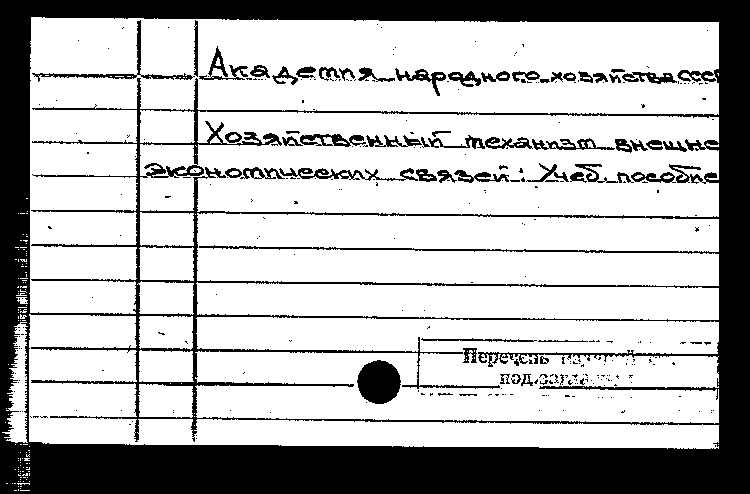 Академия народного хозяйства СССР
Хозяйственный механизм внешне
экономических связей: Учеб. пособие
Перечень
под